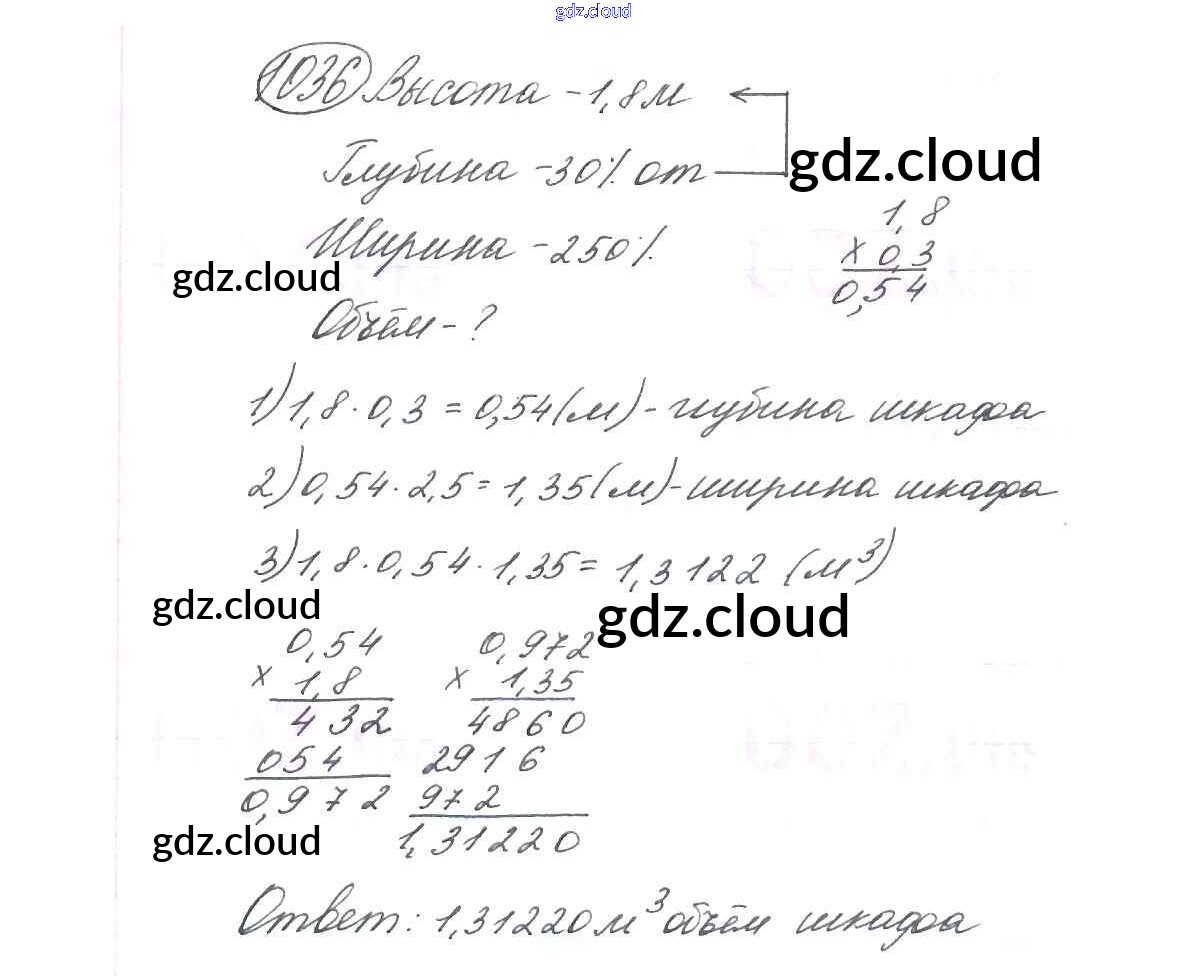 gdz.cloud
1036 Высота - 1,8 м
Глубина - 30% от
gdz.cloud
Ширина - 250%
1,8
× 0,3
0,54
gdz.cloud
Объём - ?
1) 1,8 · 0,3 = 0,54 (м) - глубина шкафа
2) 0,54 · 2,5 = 1,35 (м) - ширина шкафа
3) 1,8 · 0,54 · 1,35 = 1,3122 (м³)
gdz.cloud
gdz.cloud
0,54
× 1,8
432
054
0,972
0,972
× 1,35
4860
2916
972
1,31220
gdz.cloud
Ответ: 1,31220 м³ объём шкафа